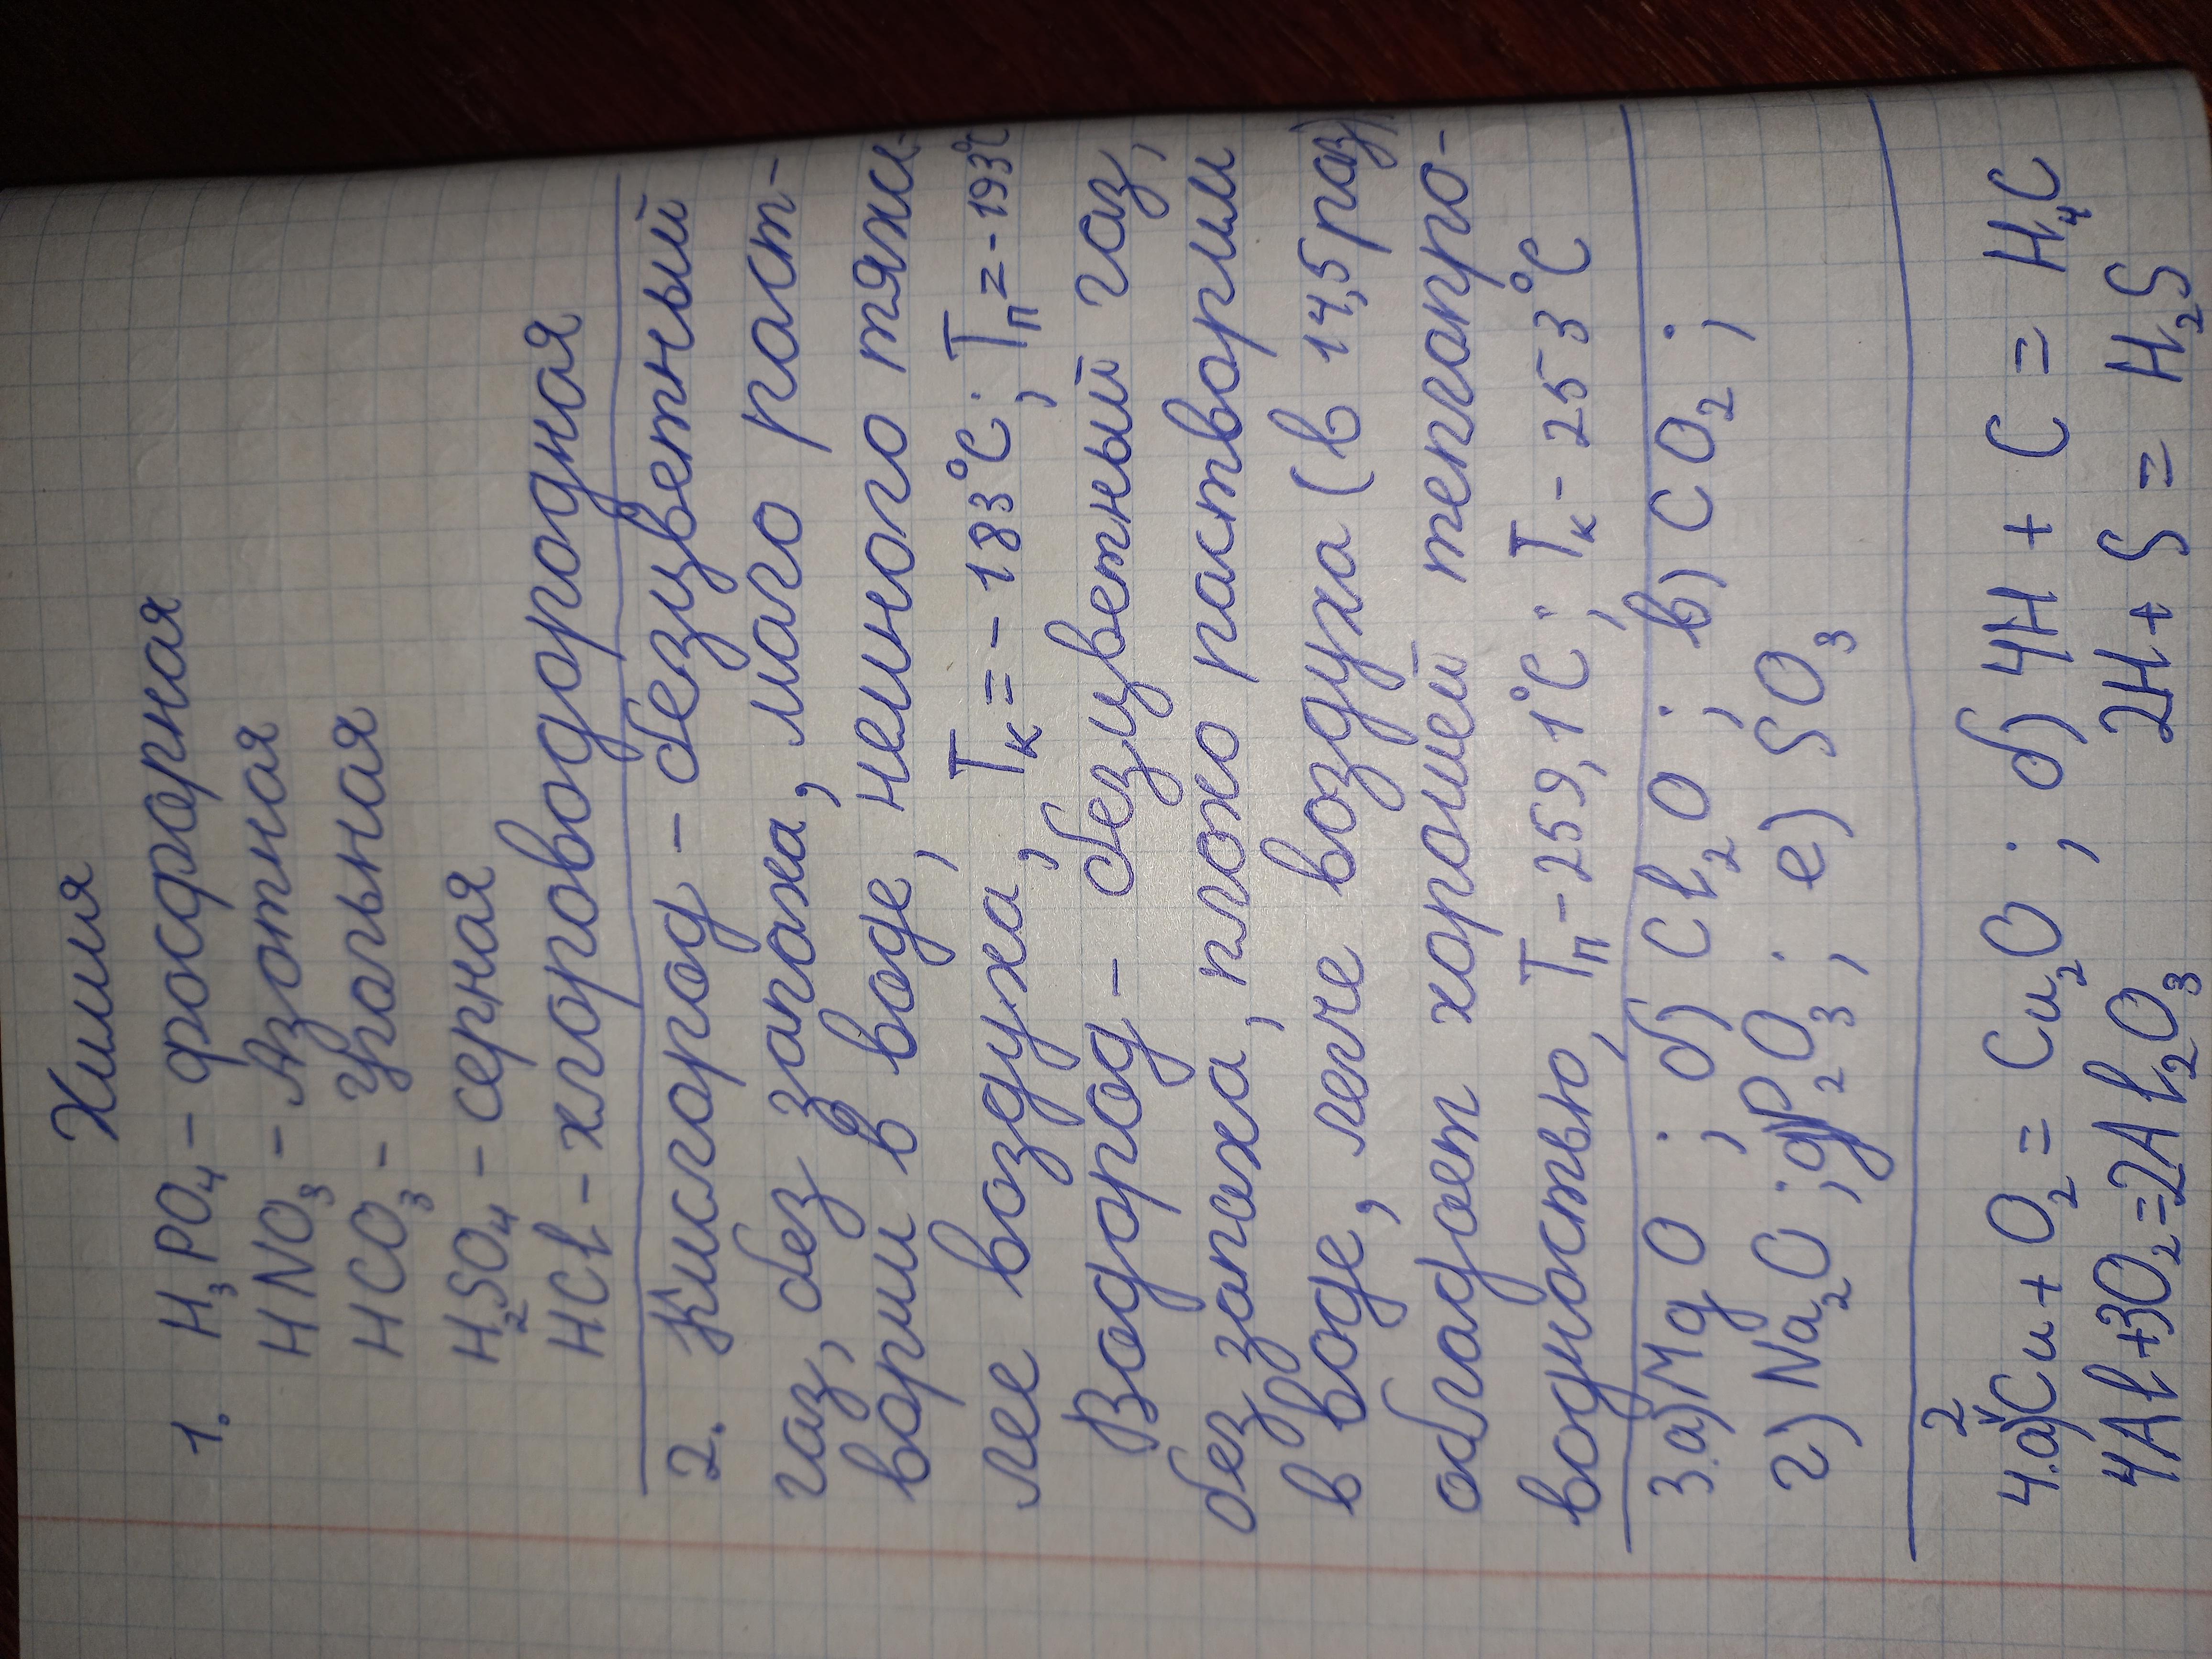 Химия
1. H₃PO₄ - фосфорная
HNO₃ - Азотная
HCO₃ - угольная
H₂SO₄ - серная
HCl - хлороводородная
2. Кислород - безцветный
газ, без запаха, мало раст-
ворим в воде, немного тяже-
лее воздуха, Tк = - 183°C; Tп = - 193°C
Водород - безцветный газ,
без запаха, плохо растворим
в воде, легче воздуха (в 14,5 раз),
обладает хорошей теплопро-
водностью, Tп - 259,1°C; Tк - 253°C
3. а) MgO ; б) Cl₂O ; в) CO₂ ;
г) Na₂O ; д) P₂O₃ ; е) SO₃
4. а) 2Cu + O₂ = Cu₂O ; б) 4H + C = H₄C
4Al + 3O₂ = 2Al₂O₃ 2H + S = H₂S